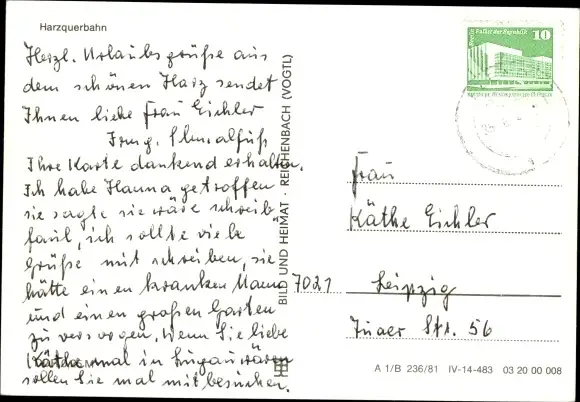 Harzquerbahn
Herzl. Urlaubsgrüße aus
dem schönen Harz sendet
Ihnen liebe Frau Eichler
Irmg.
Ihre Karte dankend erhalten.
Ich habe Hanna getroffen
sie sagte sie wäre schreib
faul, ich sollte viele
Grüße mit schreiben, sie
hätte einen kranken Mann
und einen großen Garten
zu versorgen, Wenn Sie liebe
Käthe mal in Lugau wären
sollen Sie mal mit besuchen.
BILD UND HEIMAT · REICHENBACH (VOGTL)
10
Frau
Käthe Eichler
7021 Leipzig
Str. 56
A 1/B 236/81 IV-14-483 03 20 00 008